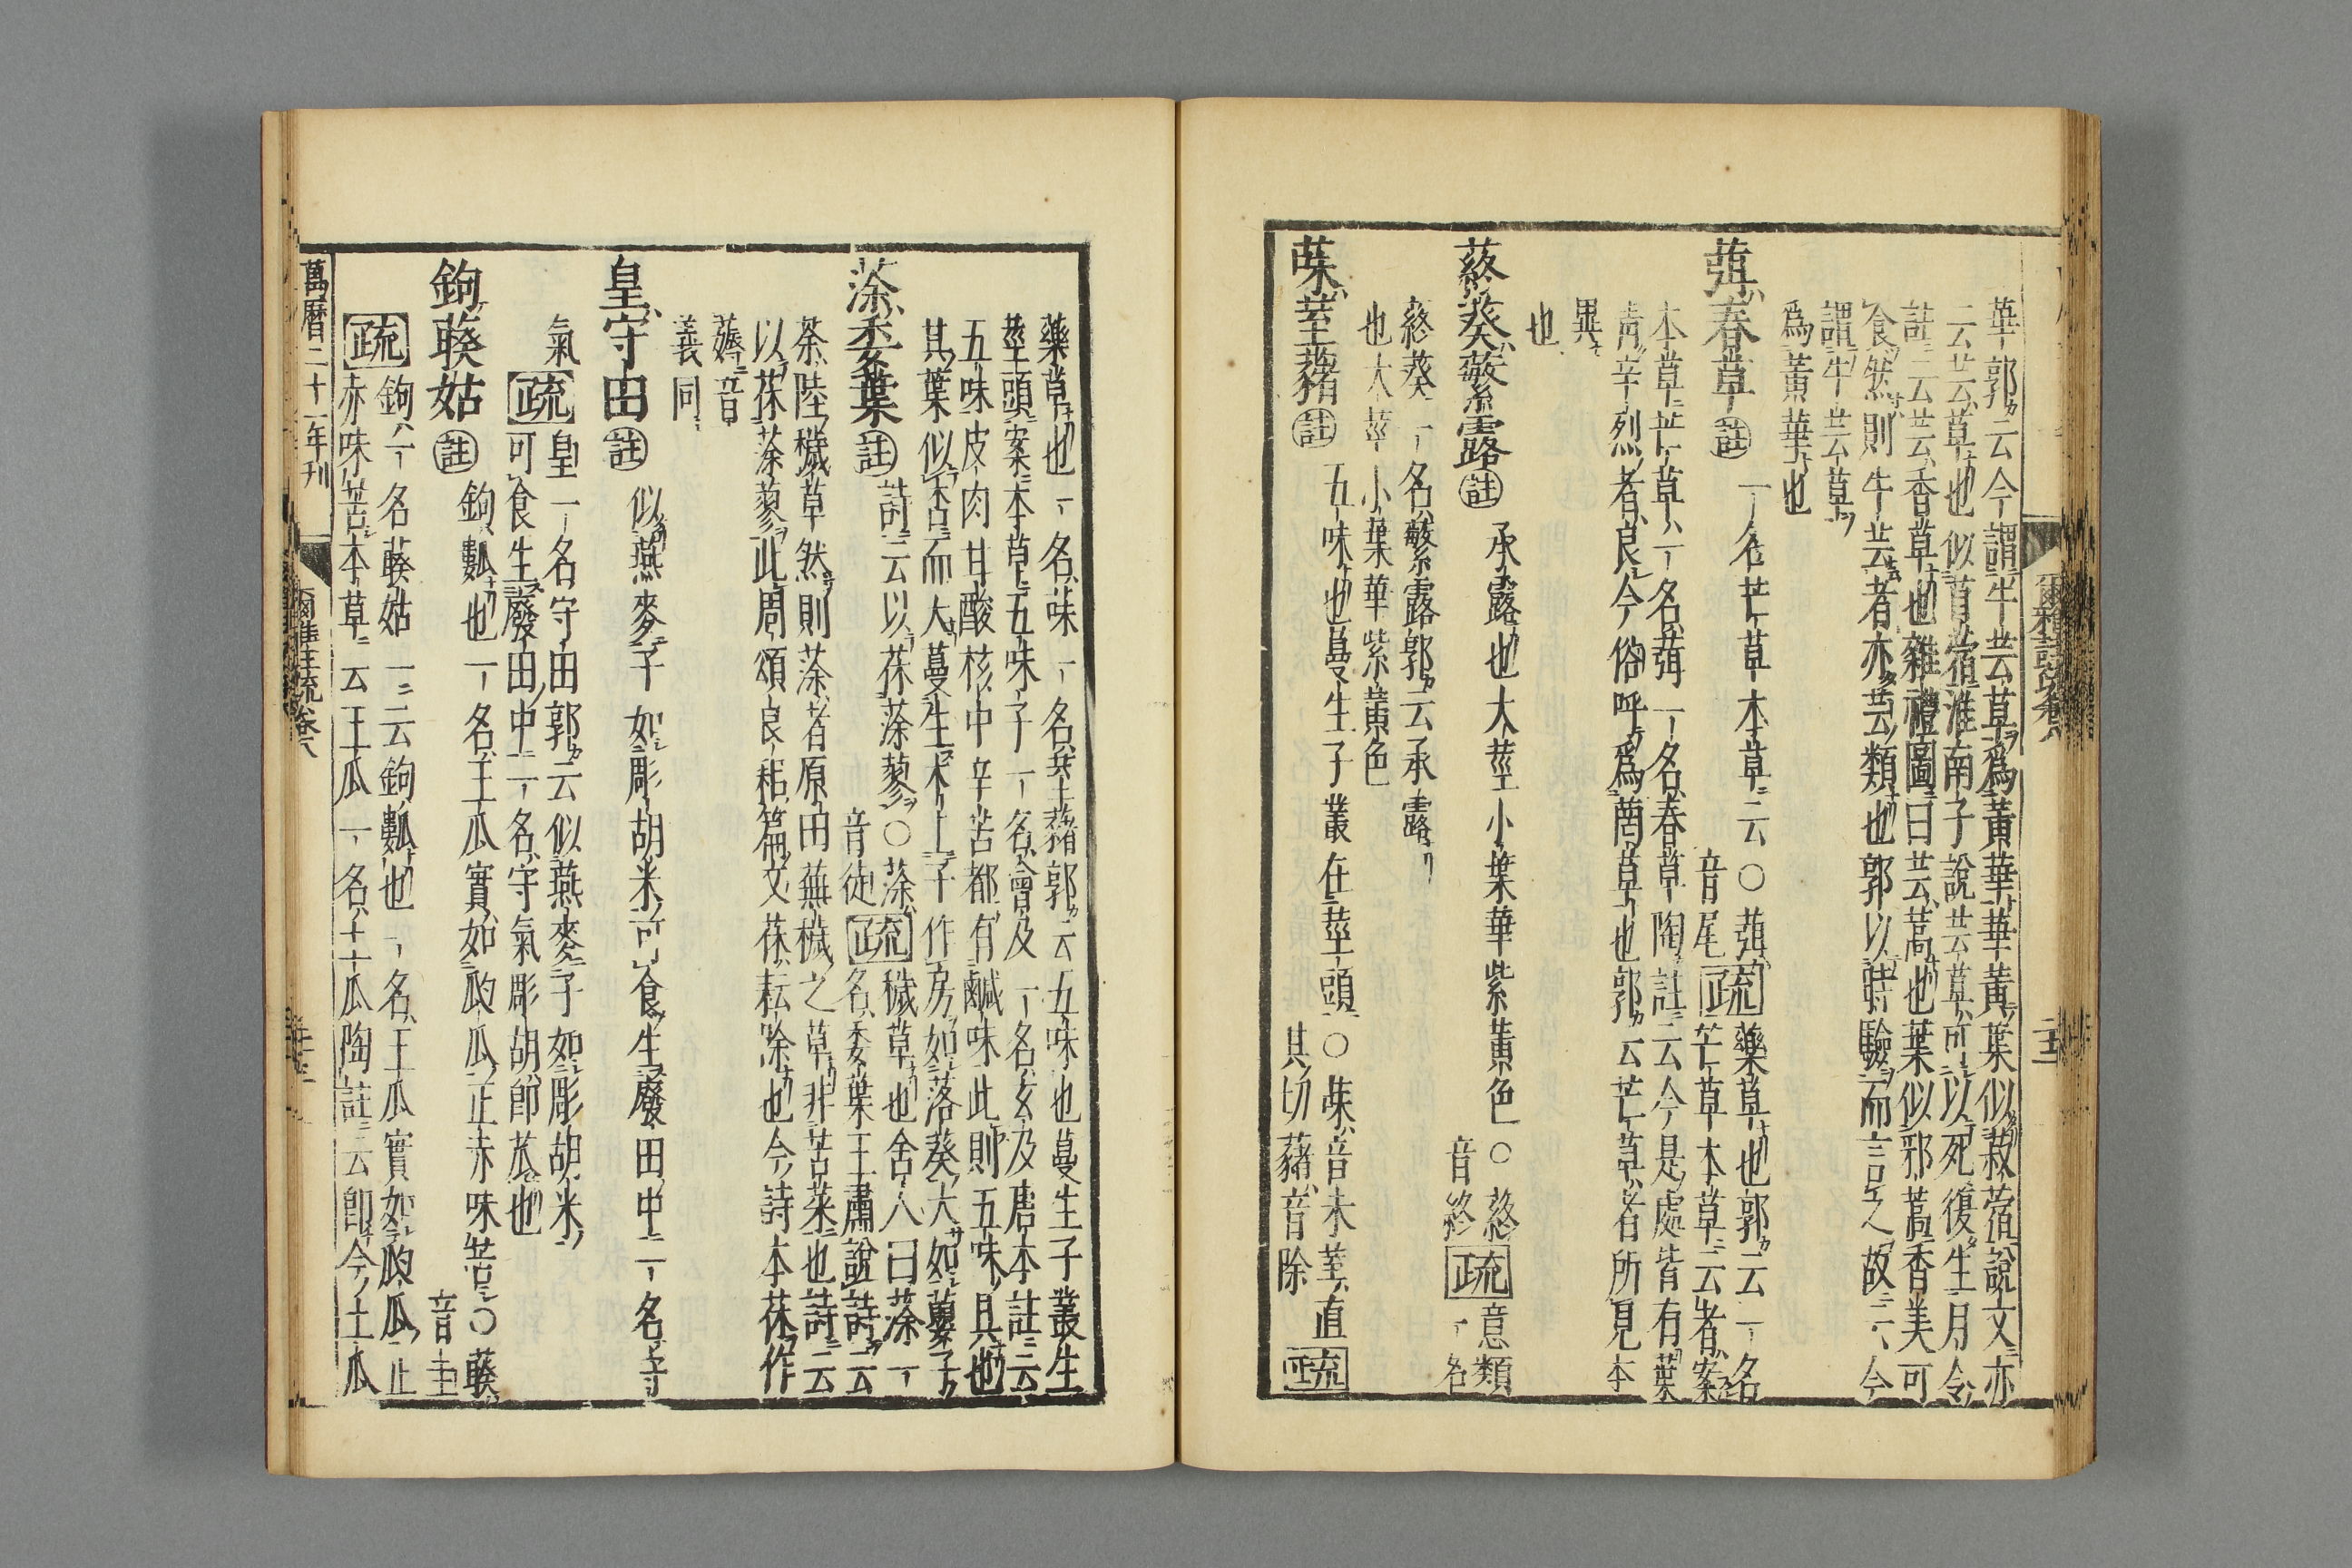 華郭云今謂牛芸草爲黃華華黃葉似菽蓿說文亦
云芸草也似苜蓿淮南子說芸草可以死復生月令
註云芸香草也雜禮圖曰芸蒿也葉似邪蒿香美可
食然則牛芸者亦芸類也郭以時驗而言之故云今
謂牛芸草
爲黃華也
葞春草註一名芒草本草云○葞音尾疏藥草也郭云一名芒草本草云者案
本草芒草一名葞一名春草陶註云今是處皆有葉
靑辛烈者良今俗呼爲䓞草也郭云芒草者所見本
異
也
蔠葵蘩露註承露也大莖小葉華紫黃色○蔠音終疏蔠葵一名蘩露郭云承露
也大莖小葉華紫黃色
菋荎藸註五味也蔓生子叢在莖頭○菋音未荎直其切藸音除疏
爾雅註疏卷八
藥草也一名菋一名荎藸郭云五味也蔓生子叢生
莖頭案本草五味子一名會及一名玄及唐本註云
五味皮肉甘酸核中辛苦都有鹹味此則五味具也
其葉似杏而大蔓生木上子作房如落葵大如蘡子
蒤委葉註詩云以茠蒤蓼○蒤音徒疏穢草也舍人曰蒤一名委葉王肅說詩云
荼陸穢草然則蒤者原田蕪穢之草非苦菜也詩云
以茠蒤蓼此周頌良耜篇文茠耘除也今詩本茠作
薅音
義同
皇守田註似燕麥子如彫胡米可食生廢田中一名守
氣疏皇一名守田郭云似燕麥子如彫胡米
可食生廢田中一名守氣彫胡卽菰也
鉤藈姑註鉤㼎也一名王瓜實如瓝瓜正赤味苦○藈音圭
疏鉤一名藈姑一云鉤㼎也一名王瓜實如瓝瓜正
赤味苦本草云王瓜一名土瓜陶註云卽今土瓜
萬曆二十一年刊
爾雅註疏卷八